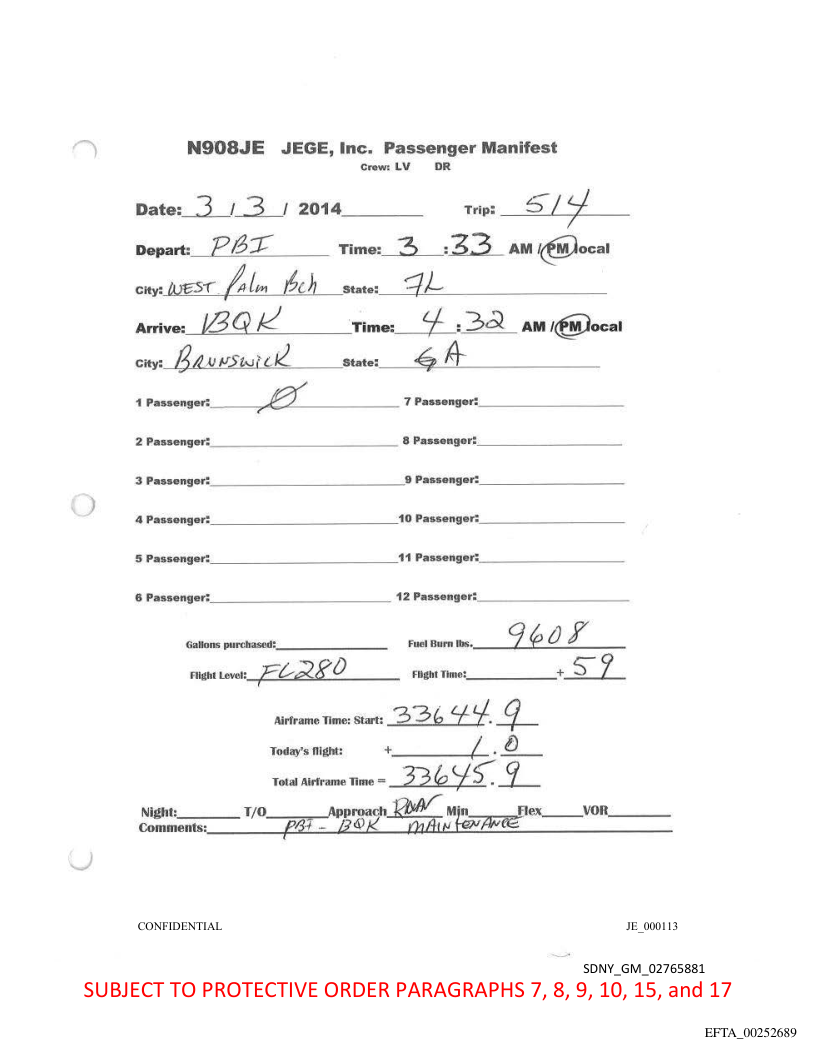 N908JE JEGE, Inc. Passenger Manifest
Crew: LV DR
Date: 3 / 3 / 2014 Trip: 514
Depart: PBI Time: 3 : 33 AM / PM local
City: WEST Palm Bch State: FL
Arrive: BQK Time: 4 : 32 AM / PM local
City: BRUNSWICK State: GA
1 Passenger: Ø 7 Passenger:
2 Passenger: 8 Passenger:
3 Passenger: 9 Passenger:
4 Passenger: 10 Passenger:
5 Passenger: 11 Passenger:
6 Passenger: 12 Passenger:
Gallons purchased: Fuel Burn lbs. 9608
Flight Level: FL280 Flight Time: + 59
Airframe Time: Start: 33644.9
Today's flight: + 1.0
Total Airframe Time = 33645.9
Night: T/O Approach RNAV Min Flex VOR
Comments: PBI - BQK MAINTENANCE
CONFIDENTIAL JE_000113
SDNY_GM_02765881
SUBJECT TO PROTECTIVE ORDER PARAGRAPHS 7, 8, 9, 10, 15, and 17
EFTA_00252689